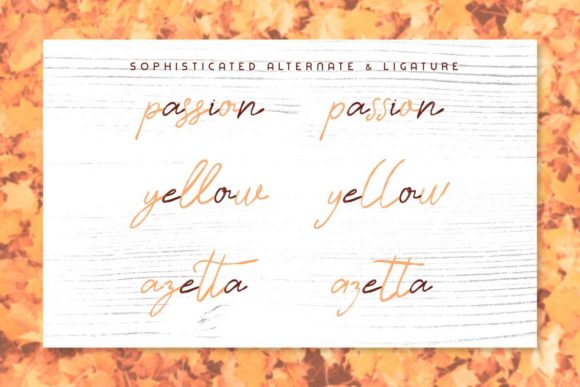 SOPHISTICATED ALTERNATE & LIGATURE
passion passion
yellow yellow
azetta azetta